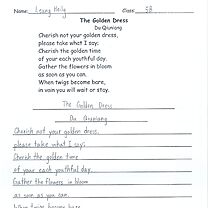 Name: Leung Heily Class: 3B
The Golden Dress
Du Qiuniang
Cherish not your golden dress,
please take what I say;
Cherish the golden time
of your each youthful day.
Gather the flowers in bloom
as soon as you can.
When twigs become bare,
in vain you will wait or stay.
The Golden Dress
Du Qiuniang
Cherish not your golden dress,
please take what I say;
Cherish the golden time
of your each youthful day.
Gather the flowers in bloom
as soon as you can.
When twigs become bare,